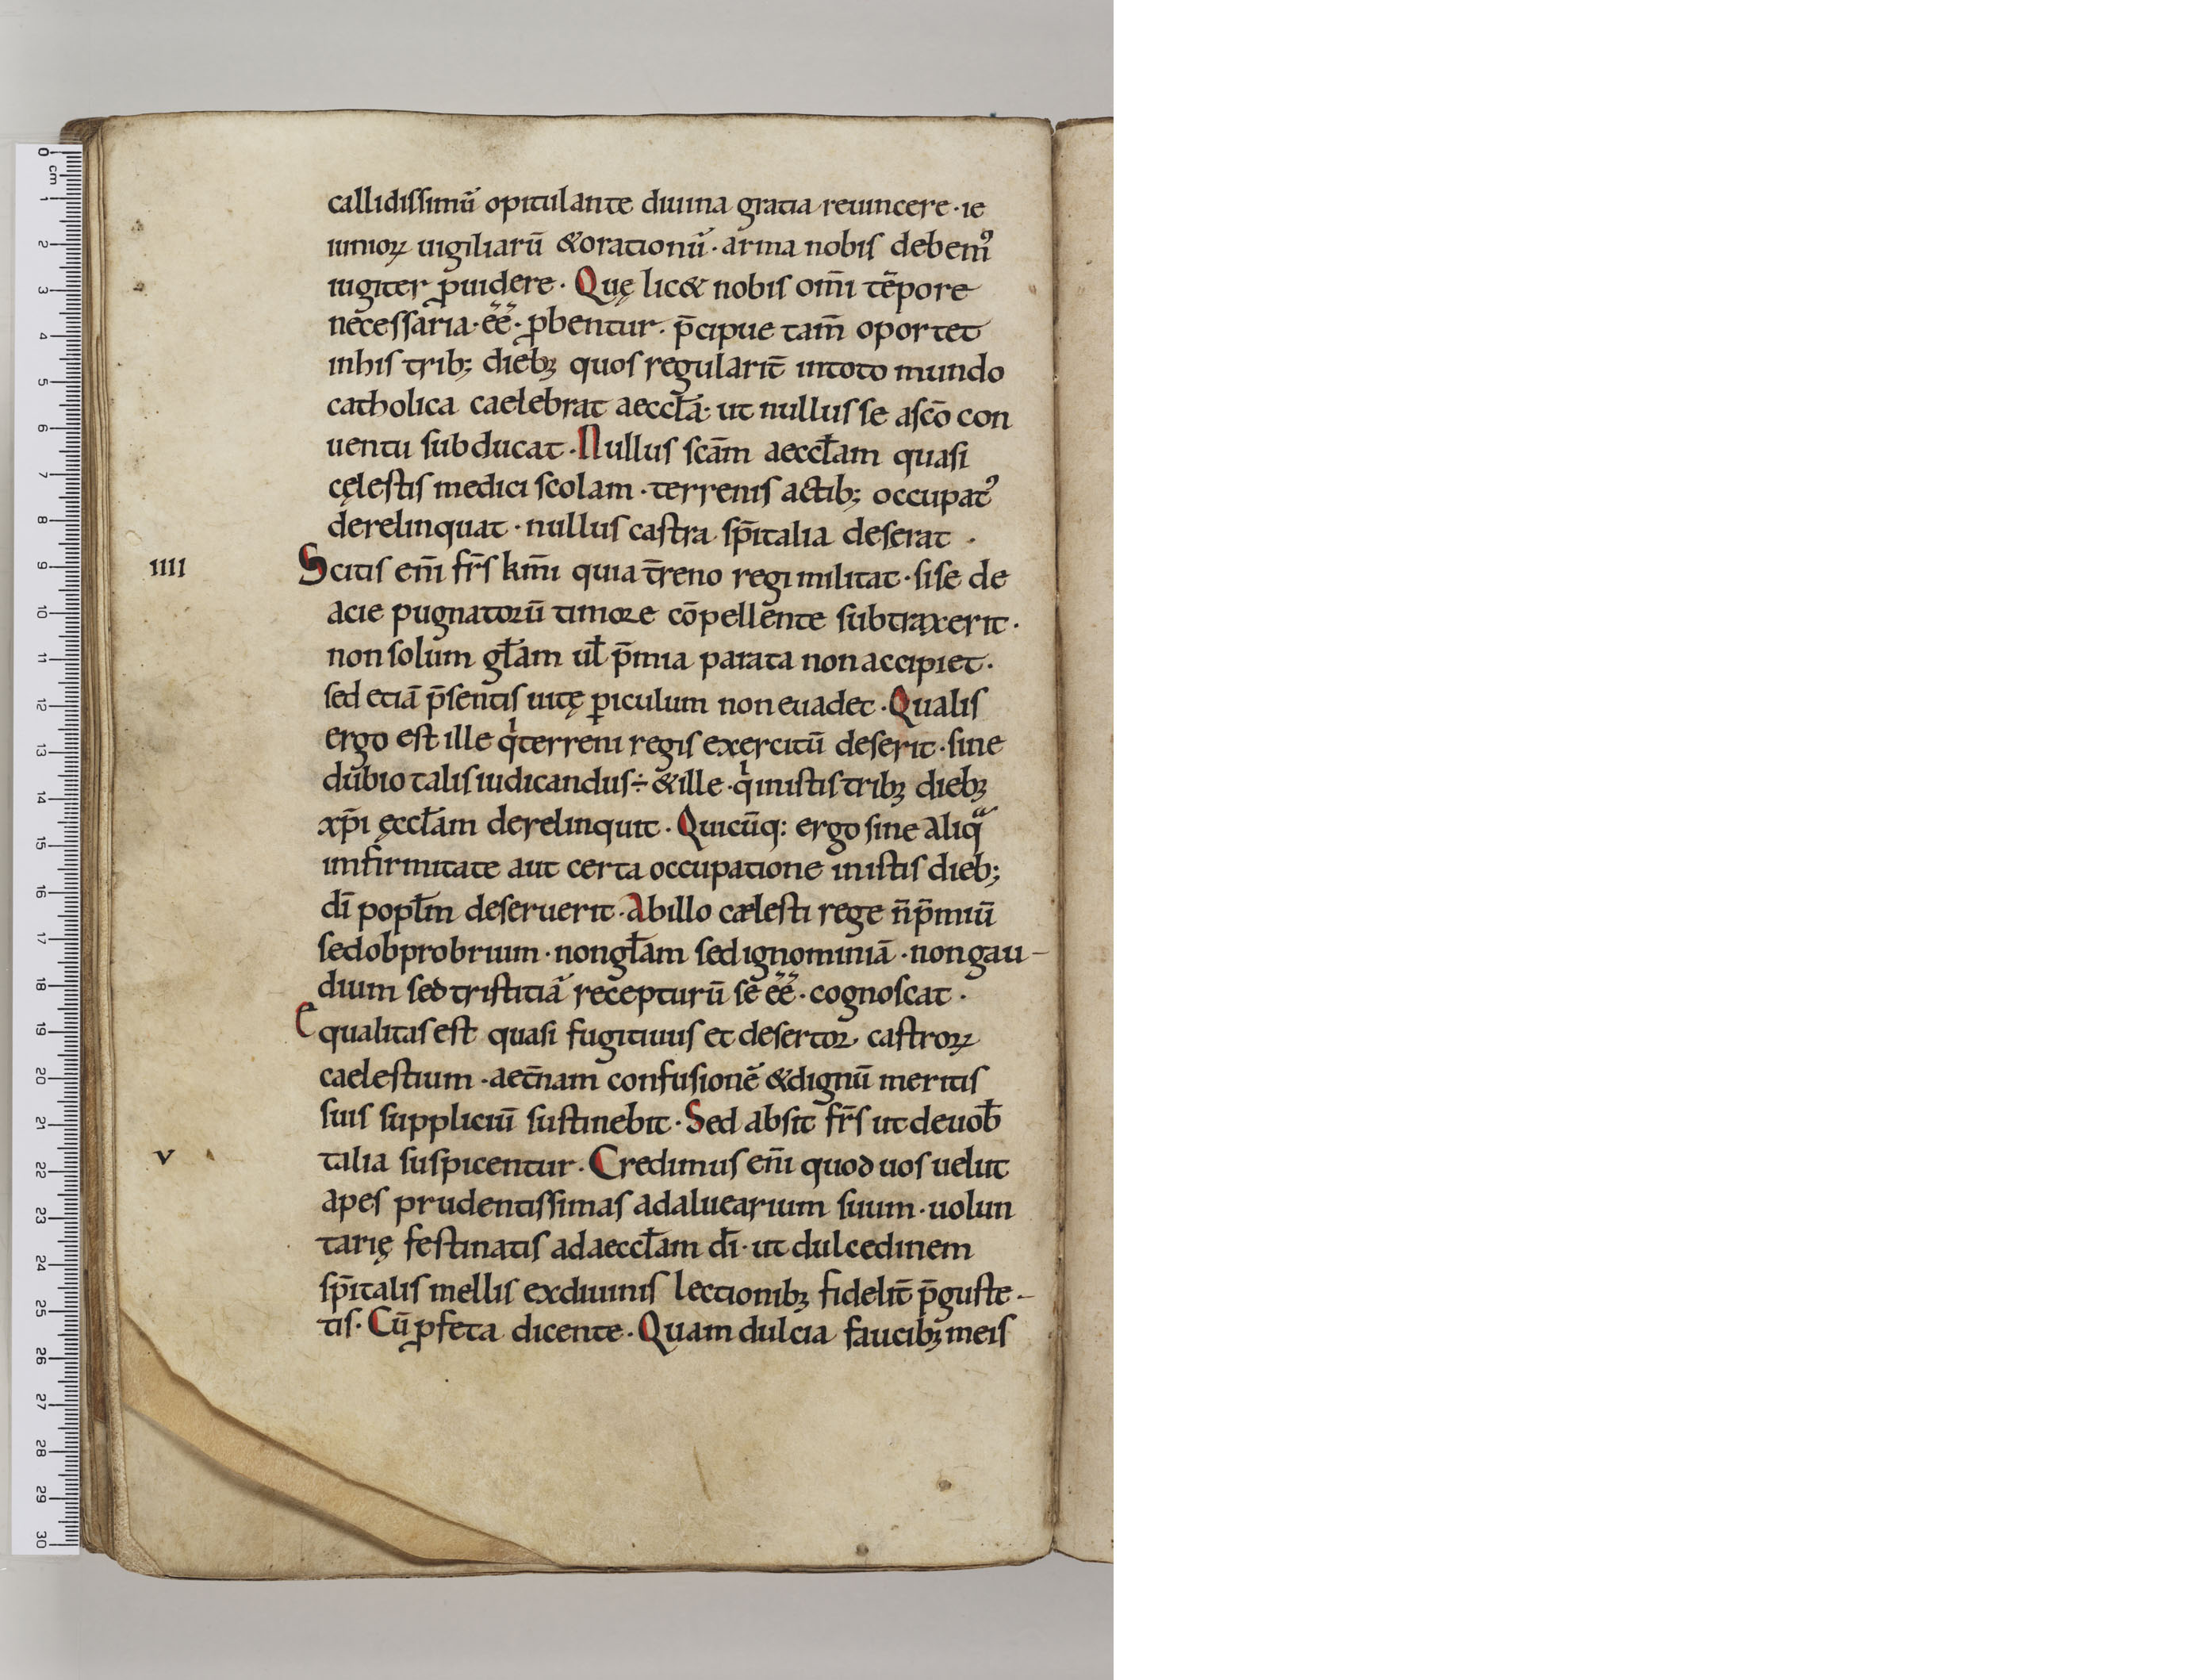 callidiſſimū opitulante diuina gratia reuincere · ie
iunioꝝ uigiliarū &orationū · arma nobiſ debem᷒
iugiter ꝓuidere · Quę lic& nobiſ om̄i tēpore
neceſſaria · ēē · ꝓbentur · p̄cipue tam̄ oportet
inhiſ trib; diebꝫ quoſ regularit̄ intoto mundo
catholica caelebrat aeccła · ut nulluſ ſe aſcō con
uentu ſubducat · Nulluſ scām aeccłam quaſi
cęleſtiſ medici ſcolam · terreniſ actib; occupat᷒
derelinquat · nulluſ caſtra sp̄italia deſerat ·
IIII
Scitiſ eni̅ fr̄ſ km̄i quia t̄reno regi militat · ſiſe de
acie pugnatoꝛū timoꝛe cōpellente ſubtraxerit ·
non ſolum głam uł p̄mia parata non accipiet ·
ſed etiā p̄ſentiſ uitę ꝑiculum non euadet · Qualiſ
ergo eſt ille qͥterreni regiſ exercitū deſerit · ſine
dubio taliſ iudicanduſ ÷ &ille · qͥiniſtiſ tribꝫ diebꝫ
xp̄i ęccłam derelinquit · Quicūq: ergo ſine aliqᷓ
infirmitate aut certa occupatione iniſtiſ dieb;
dı̄ popłm deſeruerit · Abillo cæleſti rege n̄p̄miū
ſedobprobrium · nongłam ſedignominiā · nongau-
dium ſedtriſtitiā recepturū ſē ēē · cognoſcat ·
E
qualitaſ eſt quaſi fugitiuuſ et deſertoꝛ caſtroꝝ
caeleſtium · aet̄nam confuſionē &dignū meritiſ
ſuiſ ſuppliciū ſuſtinebit · Sed abſit fr̄ſ ut deuob̄
V
talia ſuſpicentur · Credimuſ eni̅ quod uoſ uelut
apeſ prudentiſſimaſ adaluearium ſuum · uolun
tarię feſtinatiſ adaeccłam dı̄ · ut dulcedinem
sp̄italiſ melliſ exdiuiniſ lectionibꝫ fidelit̄ p̄guſte-
tiſ · Cū ꝓfeta dicente · Quam dulcia faucibꝫ meiſ